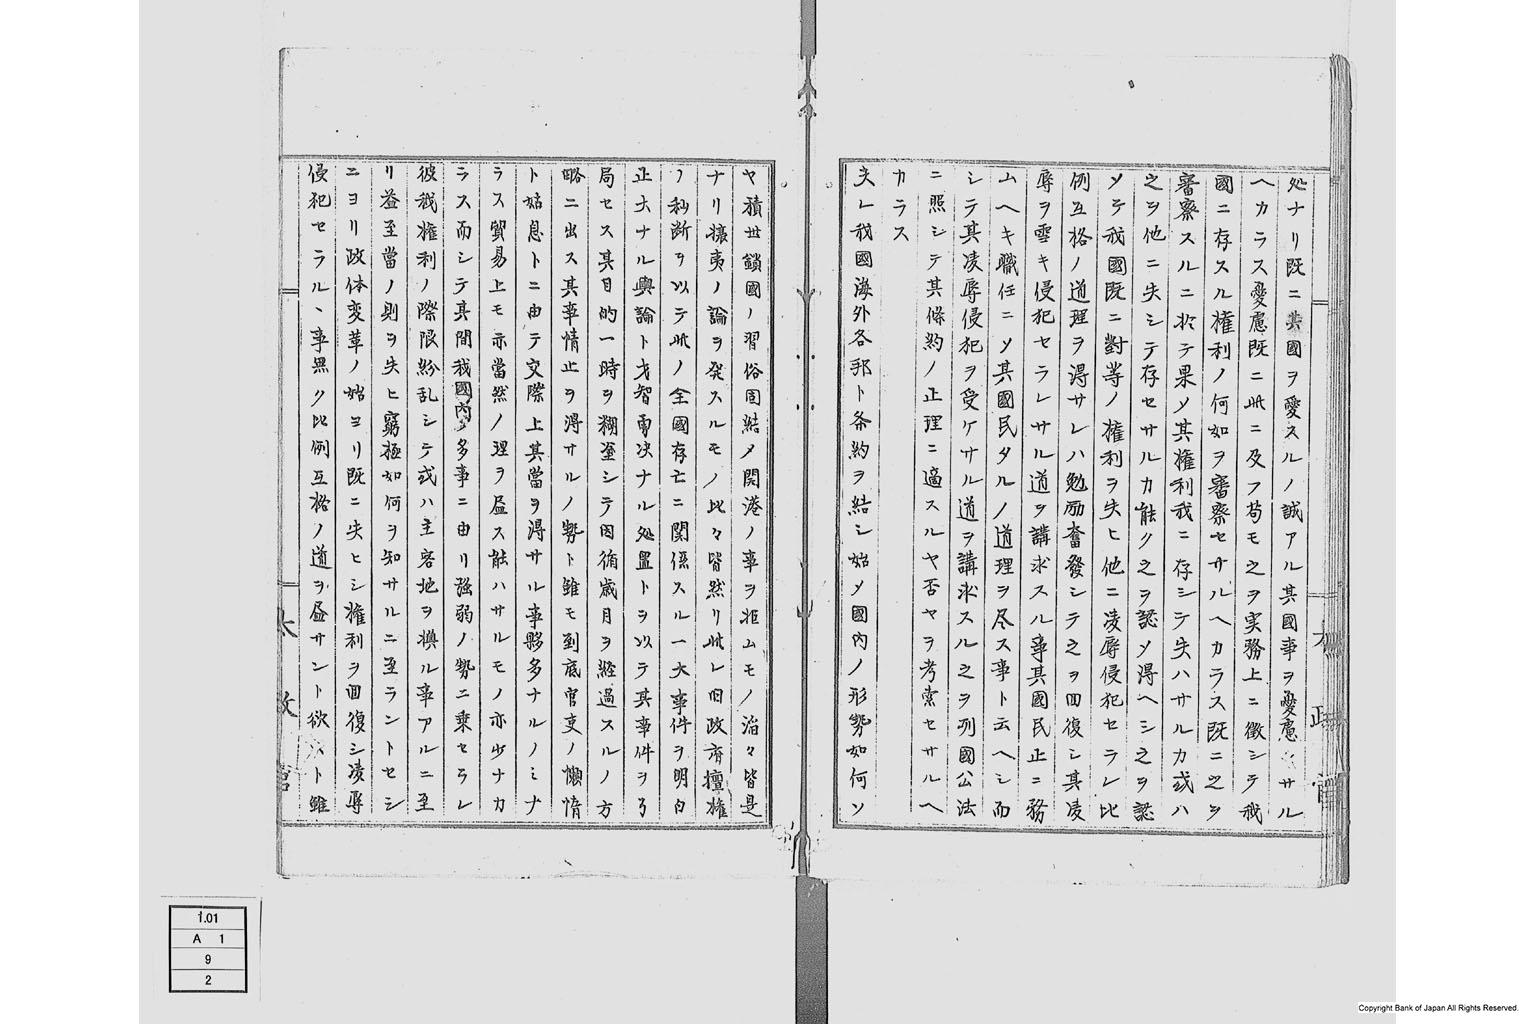 処ナリ既ニ其國ヲ愛スルノ誠アル其國事ヲ愛慮サル
ヘカラス愛慮既ニ此ニ及フ苟モ之ヲ実務上ニ徴シテ我
國ニ存スル權利ノ何如ヲ審察セサルヘカラス既ニ之ヲ
審察スルニ於テ果ソ其權利我ニ存シテ失ハサルカ或ハ
之ヲ他ニ失シテ存セサルカ能ク之ヲ認メ得ヘシ之ヲ認
メテ我國既ニ對等ノ權利ヲ失ヒ他ニ凌辱侵犯セラレ比
例互格ノ道理ヲ得サレハ勉励奮發シテ之ヲ回復シ其凌
辱ヲ雪キ侵犯セラレサル道ヲ講求スル事其國民正ニ務
ムヘキ職任ニソ其國民タルノ道理ヲ尽ス事ト云ヘシ而
シテ其凌辱侵犯ヲ受ケサル道ヲ講求スル之ヲ列國公法
ニ照シテ其條約ノ正理ニ適スルヤ否ヤヲ考索セサルヘ
カラス
夫レ我國海外各邦ト条約ヲ結シ始メ國内ノ形勢如何ソ
ヤ積世鎖國ノ習俗固結メ開港ノ事ヲ拒ムモノ滔々皆是
ナリ攘夷ノ論ヲ発スルモノ比々皆然リ此レ旧政府擅權
ノ私断ヲ以テ此ノ全國存亡ニ関係スル一大事件ヲ明白
正大ナル輿論ト才智勇决ナル処置トヲ以テ其事件ヲ了
局セス其目的一時ヲ糊塗シテ因循歳月ヲ經過スルノ方
略ニ出ス其事情止ヲ得サルノ勢ト雖モ到底官吏ノ懶惰
ト姑息トニ由テ交際上其當ヲ得サル事夥多ナルノミナ
ラス貿易上モ亦當然ノ理ヲ盡ス能ハサルモノ亦少ナカ
ラス而シテ其間我國内多事ニ由リ強弱ノ勢ニ乗セラレ
彼我權利ノ際限紛乱シテ或ハ主客地ヲ換ル事アルニ至
リ益至當ノ則ヲ失ヒ窮極如何ヲ知サルニ至ラントセシ
ニヨリ政体変革ノ始ヨリ既ニ失ヒシ權利ヲ回復シ凌辱
侵犯セラルヽ事無ク比例互格ノ道ヲ盡サント欲スト雖
太政官
太政官
1.01
A 1
9
2
Copyright Bank of Japan All Rights Reserved.